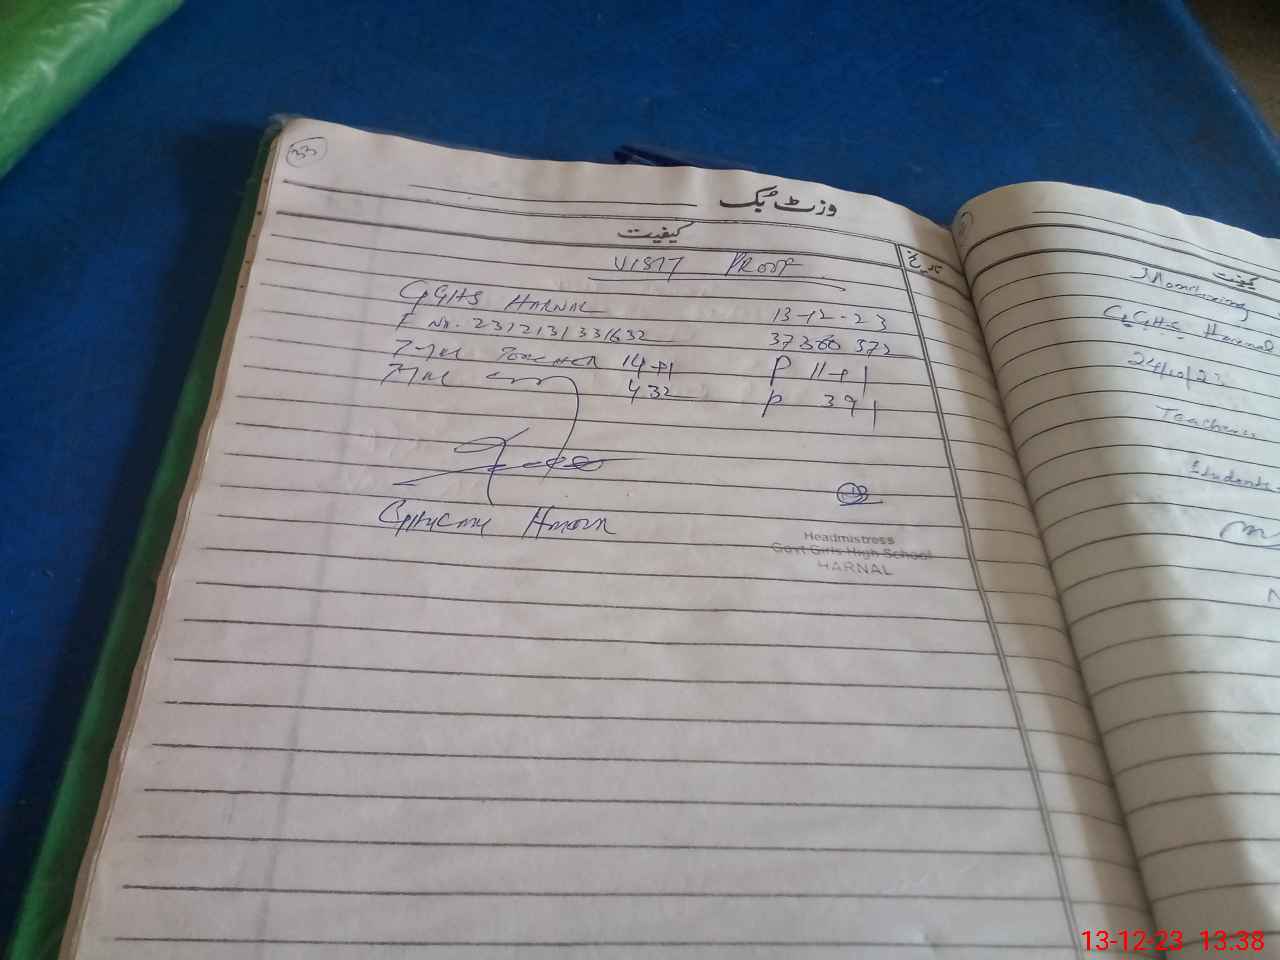 33
وزٹ بک
کیفیت
تاریخ
VISIT PROOF
GGHS HARNAL 13-12-23
F No. 2312131331632 37360 372
Total Teacher 14+1 P 11+1
Total 432 P 391
Headmistress
Govt Girls High School
HARNAL
کیفیت
Monitoring
GGHS Harnal
24/10/23
Teachers
Students
13-12-23 13.38